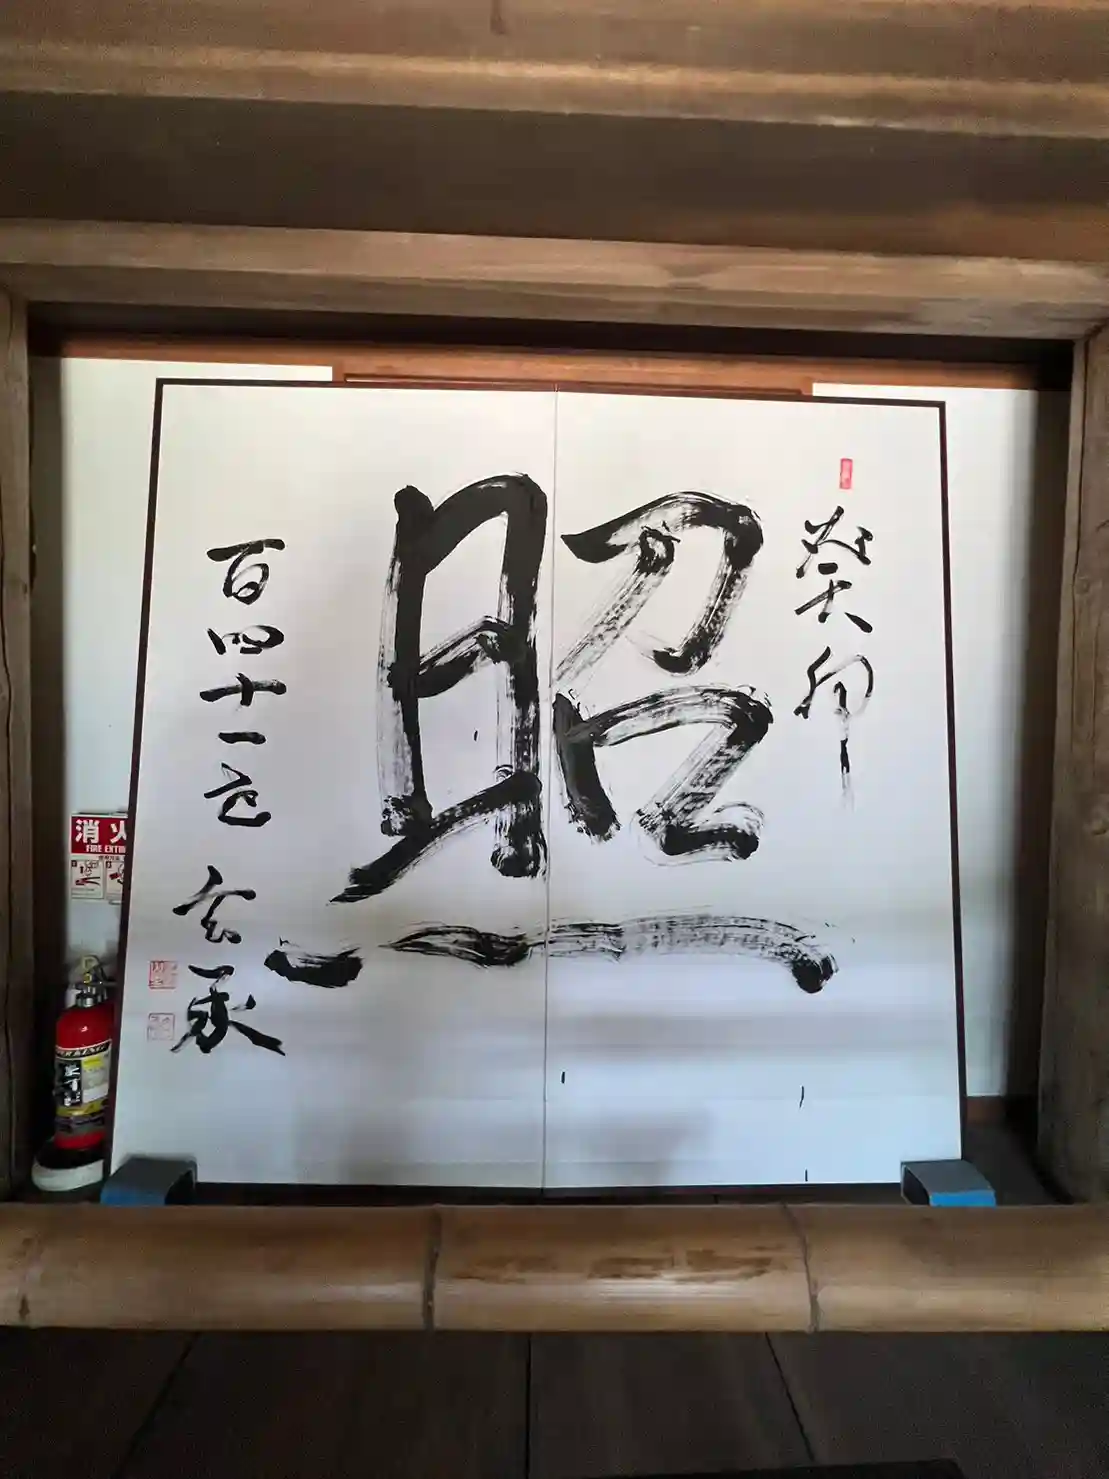 癸卯
照
百四十一世 玄承
消火
FIRE EXTIN